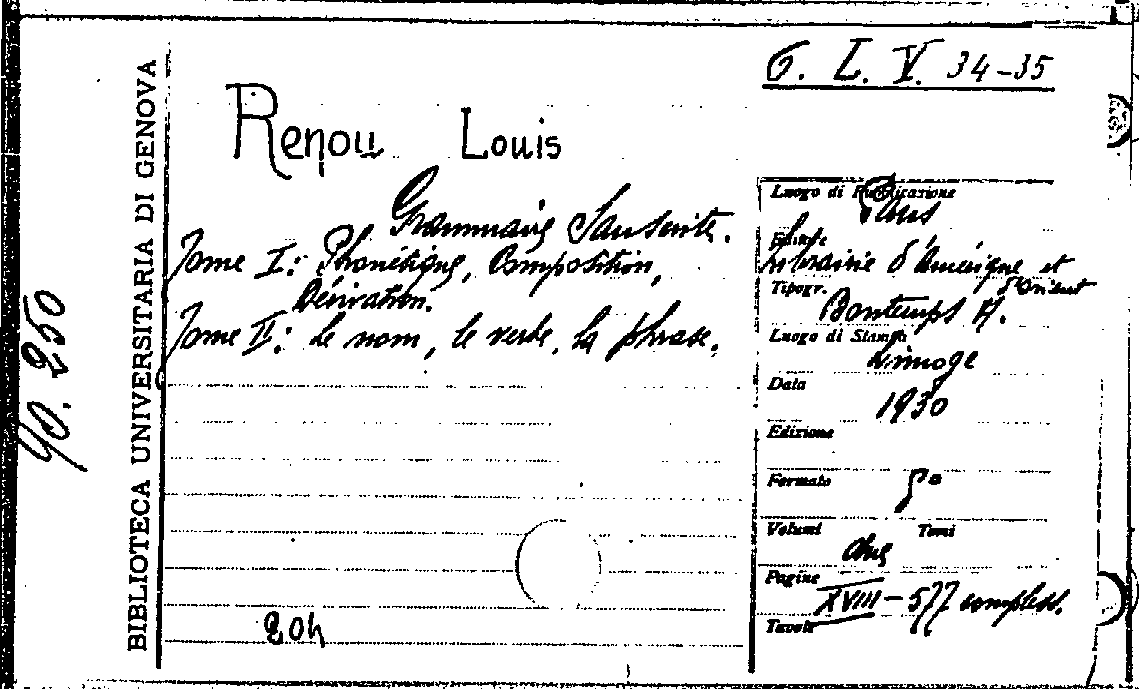 G. L. V. 34-35
BIBLIOTECA UNIVERSITARIA DI GENOVA
90. 250
Renou Louis
Grammaire Sanscrite.
Tome I: Phonétique, Composition,
Dérivation.
Tome II: le nom, le verbe, la phrase.
204
Luogo di Pubblicazione
Paris
Editore
Librairie d'Amérique et
d'Orient
Tipogr.
Bontemps A.
Luogo di Stampa
Limoge
Data
1930
Edizione
Formato
8°
Volumi Tomi
due
Pagine
XVIII-577 compless.
Tavole